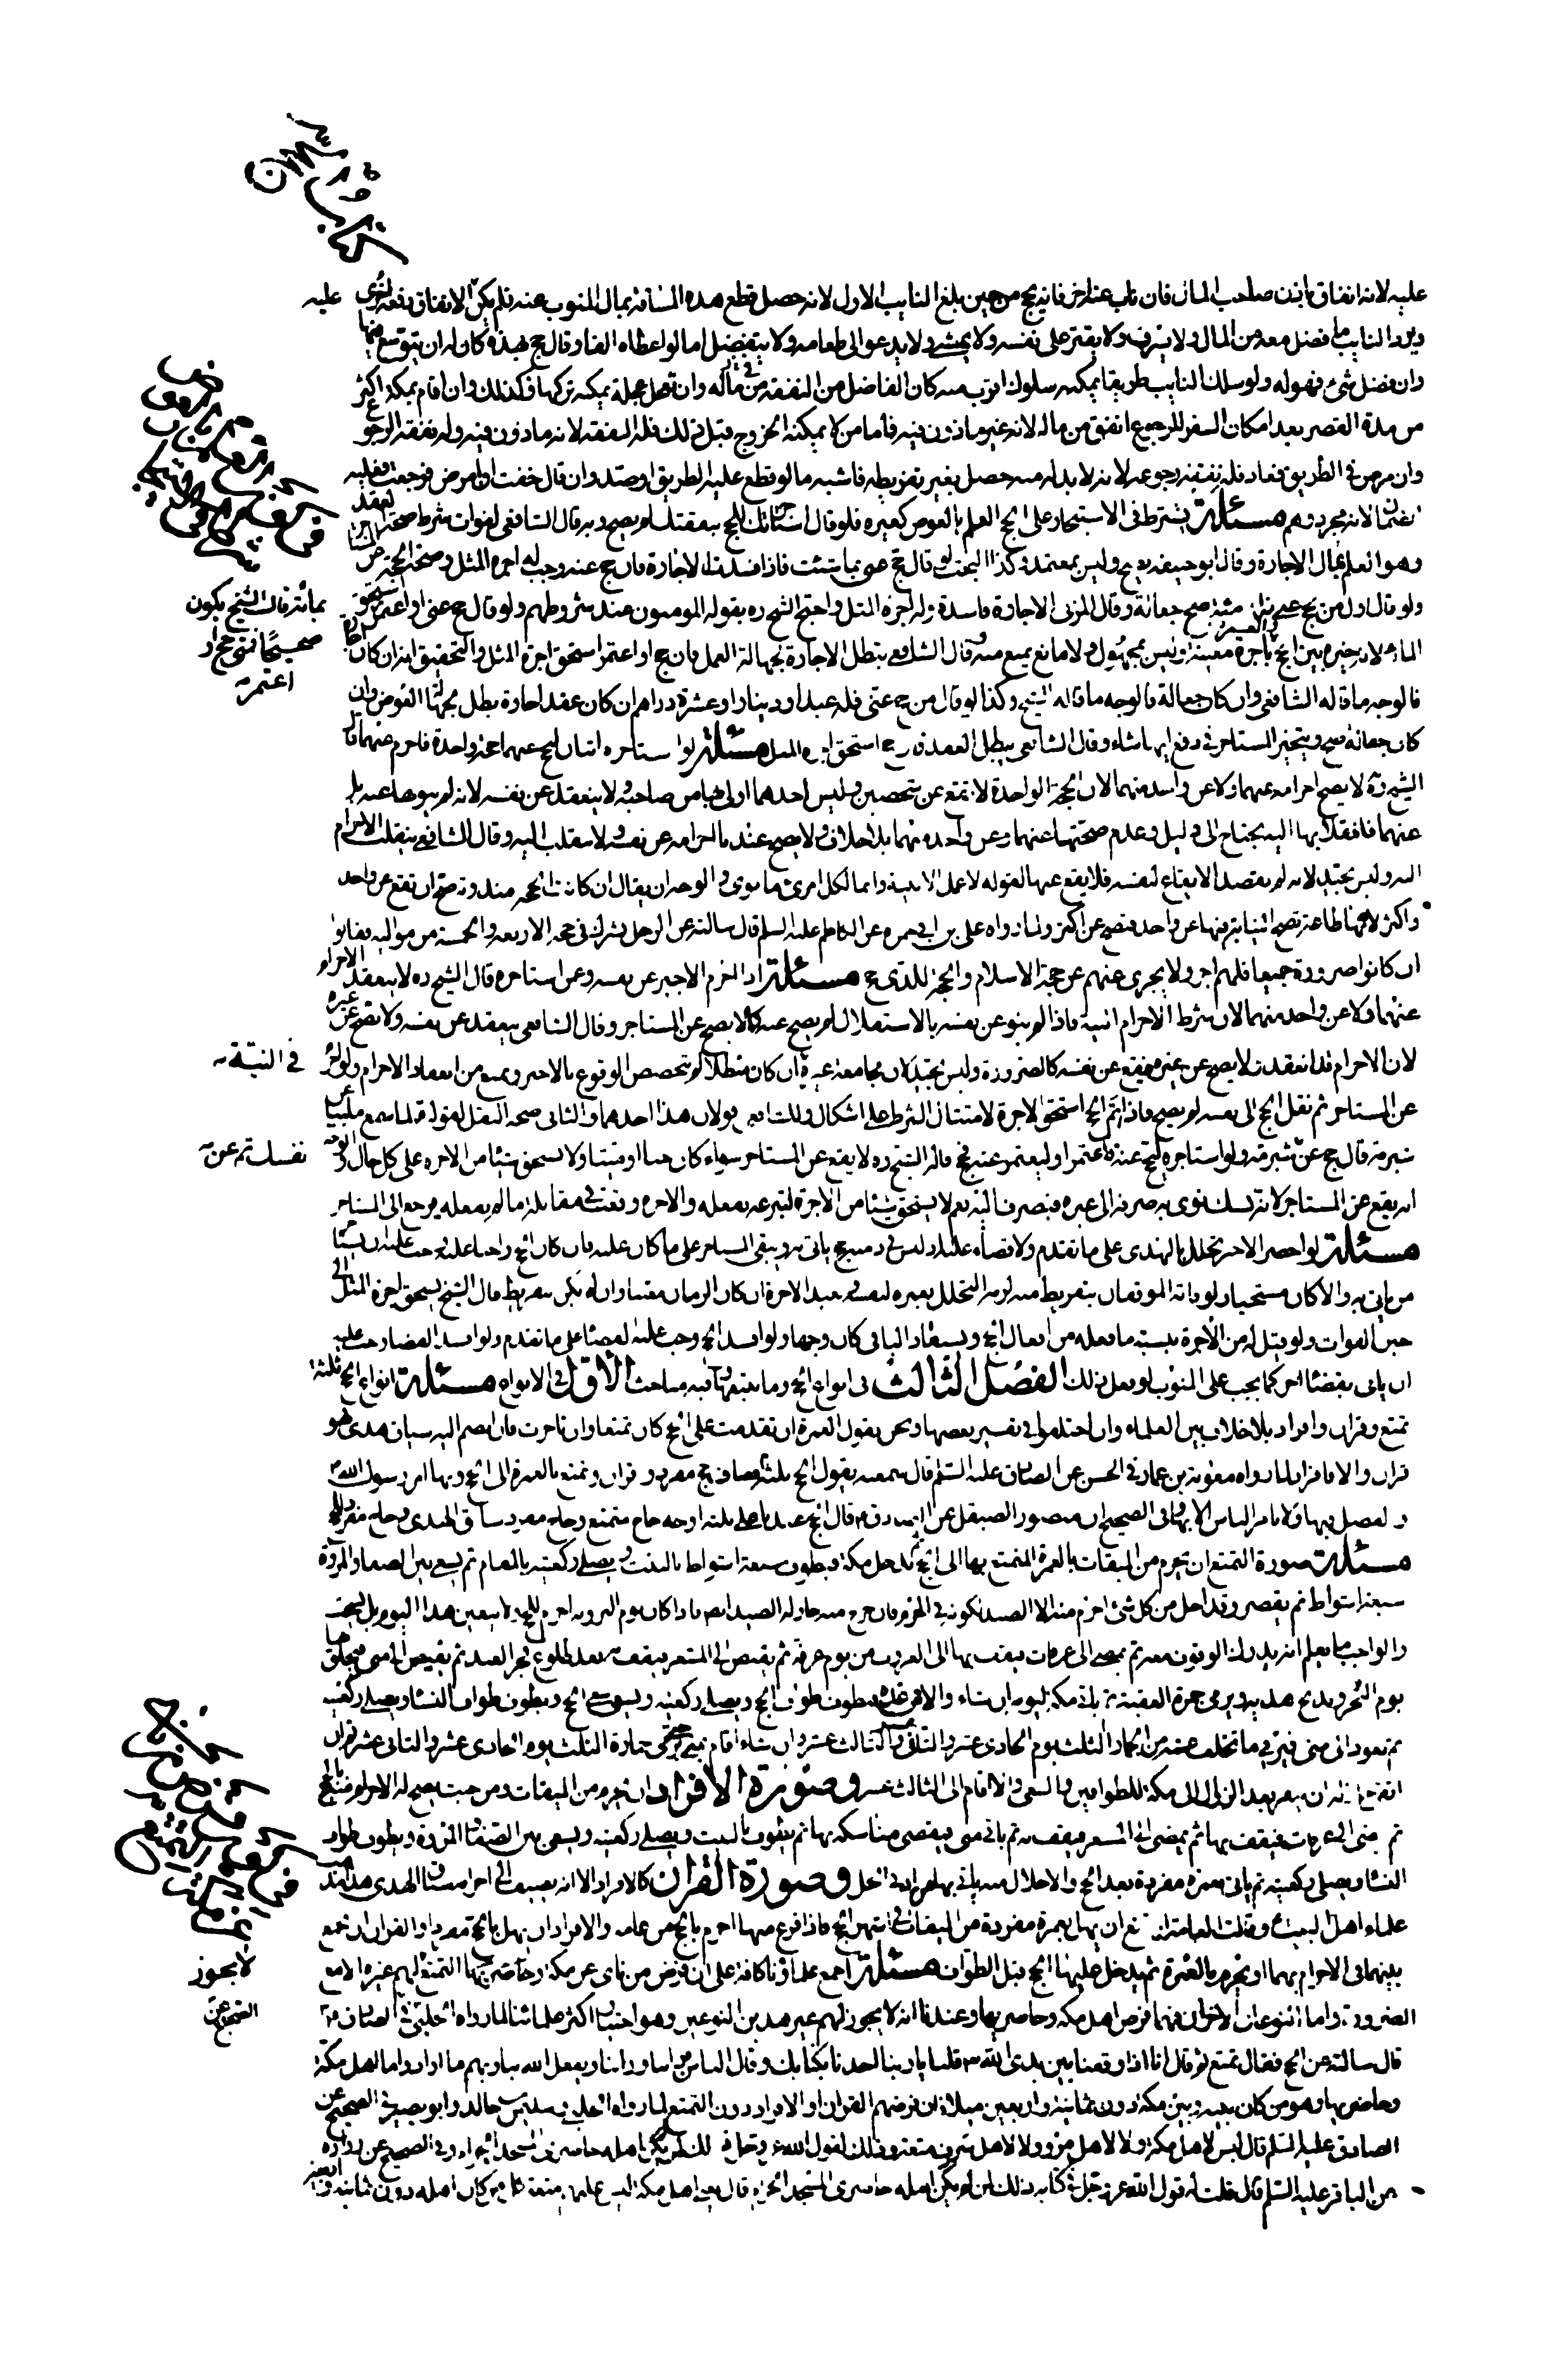 عليه لانه انفاق باذن صاحب المال فان ناب عنه اخر فانه يحج من حين بلغ النايب الاول لانه حصل قطع هذه المسافة بمال المنوب عنه فلم يكن الانفاق دفعة اخرى عليه
ويرد النايب ما فضل معه من المال ولا يسرف ولا يقتر على نفسه ولا يمشي ولا يدعو الى طعامه ولا يتفضل اما لو اعطاه الفا وقال حج بهذه كان له ان يتوسع فيها
وان فضل شيء فهو له ولو سلك النايب طريقا يمكنه سلوك اقرب منه كان الفاضل من النفقة في ماله وان تعجل عجلة يمكنه تركها فكذلك وان اقام بمكة اكثر
من مدة القصر بعد امكان السفر للرجوع انفق من ماله لانه غير ماذون فيه فأما من لا يمكنه الخروج قبل ذلك فله النفقة لانه ماذون فيه وله نفقة الرجوع
وان مرض في الطريق فعاد فله نفقة رجوعه لانه لا بد له منه حصل بغير تفريطه فاشبه ما لو قطع عليه الطريق او صد وان قال خفت ان امرض فرجعت فعليه
الضمان لانه مجرد وهم مسئلة يشترط في الاستيجار على الحج العلم بالعوض كغيره فلو قال استاجرتك للحج بنفقتك لم يصح وبه قال الشافعي لفوات شرط صحة العقد
وهو العلم بمال الاجارة وقال ابو حنيفة يصح وليس بمعتمد وكذا البحث لو قال حج عني بما شئت فاذا فسدت الاجارة فان حج عنه وجب له اجرة المثل وصحت الحجة عن المستاجر
ولو قال اول من يحج عني فله مائة صح جعالة وقال المزني الاجارة فاسدة وله اجرة المثل واحتج الشيخ ره بقوله المومنون عند شروطهم ولو قال حج عني او اعتمر استحق
بمائة قال الشيخ يكون صحيحا فمتى حج او اعتمر
المائة لانه خيره بين الحج والعمرة باجرة معينة وليس بمجهول ولا مانع يمنع منه وقال الشافعي يبطل الاجارة لجهالة العمل فان حج او اعتمر استحق اجرة المثل والتحقيق انه ان كان اجارة
فالوجه ما قاله الشافعي وان كان جعالة فالوجه ما قاله الشيخ وكذا لو قال من حج عني فله عبد او دينار او عشرة دراهم ان كان عقد اجارة بطل لجهالة العوض وان
كان جعالة صح ويتخير المستاجر في دفع ايها شاء وقال الشافعي يبطل العقد فان حج استحق اجرة المثل مسئلة لو استاجره اثنان ليحج عنهما حجة واحدة فاحرم عنهما قال
الشيخ ره لا يصح احرامه عنهما ولا عن واحد منهما لان الحجة الواحدة لا تقع عن شخصين وليس احدهما اولى بها من صاحبه ولا ينعقد عن نفسه لانه لم ينوها عنه بل
عنهما فانقلابها اليه يحتاج الى دليل وعدم صحتها عنهما وعن واحد منهما بلا خلاف ولا يصح عندنا احرامه عن نفسه ولا ينقلب اليه وقال الشافعي ينقلب الاحرام
اليه وليس بجيد لانه لم يقصد الايقاع لنفسه فلا يقع عنها لقوله لا عمل الا بنية وانما لكل امرئ ما نوى والوجه ان يقال ان كانت الحجة مندوبة صح ان تقع عن واحد
واكثر لانها طاعة تصح النيابة فيها عن واحد فتصح عن اكثر ولما رواه علي بن ابي حمزة عن الكاظم عليه السلم قال سالته عن الرجل يشرك في حجة الاربعة والخمسة من مواليه فقال
ان كانوا صرورة جميعا فلهم اجر ولا يجزي عنهم عن حجة الاسلام والحجة للذي حج مسئلة اذا احرم الاجير عن نفسه وعمن استاجره قال الشيخ ره لا ينعقد الاحرام
عنهما ولا عن واحد منهما لان شرط الاحرام النية فاذا لم ينو عن نفسه بالاستقلال لم يصح عنه كما لا يصح عن المستاجر وقال الشافعي ينعقد عن نفسه ولا يصح عن غيره
لان الاحرام قد انعقد ولا يصح عن غيره فيقع عن نفسه كالضرورة وليس بجيد لان مجامعة غيره ان كان مبطلا لم يتخصص الوقوع بالاخير ويمنع من انعقاد الاحرام ولو احرم
في النية
عن المستاجر ثم نقل الحج الى نفسه لم يصح فاذا اتم الحج استحق الاجرة لامتثال الشرط على اشكال وللشافعي قولان هذا احدهما والثاني صحة النقل لقوله لما سمع ملبيا عن
شبرمة قال حج عن نفسك ثم عن شبرمة ولو استاجره ليحج عنه فاعتمر او ليعتمر عنه فحج قال الشيخ ره لا يقع عن المستاجر سواء كان حيا او ميتا ولا يستحق شيئا من الاجرة على كل حال والوجه
انه يقع عن المستاجر لانه نسك نوى به صرفه الى غيره فينصرف اليه نعم لا يستحق شيئا من الاجرة لتبرعه بفعله والاجرة وقعت في مقابلة ما لم يفعله فيرجع الى المستاجر
مسئلة لو احصر الاجير تحلل بالهدي على ما تقدم ولا قضاء عليه وليس في ذمته حج ياتي به ويبقى المستاجر على ما كان عليه فان كان الحج واجبا عليه وجب عليه ان يستاجر
من ياتي به والا كان مستحبا ولو فاته الموقفان بتفريط منه لزمه التحلل بعمرة لنفسه ويعيد الاجرة ان كان الزمان معينا وان لم يكن بتفريط قال الشيخ يستحق اجرة المثل الى
حين الفوات ولو قيل له من الاجرة بنسبة ما فعله من افعال الحج ويستعاد الباقي كان وجها ولو افسد الحج وجب عليه القضاء على ما تقدم ولو افسد القضاء وجب عليه
ان ياتي بقضاء اخر كما يجب على المنوب لو فعل ذلك الفصل الثالث في انواع الحج وما يتبعها وفيه مباحث الاول في الانواع مسئلة انواع الحج ثلثة
تمتع وقران وافراد بلا خلاف بين العلماء وان اختلفوا في تفسير بعضها ونحن نقول العمرة ان تقدمت على الحج كان تمتعا وان تاخرت فان انضم اليه سياق هدي فهو
قران والا فافراد لما رواه معوية بن عمار في الحسن عن الصادق عليه السلم قال سمعته يقول الحج ثلثة اصناف حج مفرد وقران وتمتع بالعمرة الى الحج وبها امر رسول الله ص
والفضل فيها ولا نامر الناس الا بها وفي الصحيح ان منصور الصيقل عن الصادق ع قال الحج عندنا على ثلثة اوجه حاج متمتع وحاج مفرد ساق الهدي وحاج مفرد للحج
مسئلة صورة التمتع ان يحرم من الميقات بالعمرة المتمتع بها الى الحج ثم يدخل مكة ويطوف سبعة اشواط بالبيت ويصلي ركعتيه بالمقام ثم يسعى بين الصفا والمروة
سبعة اشواط ثم يقصر وقد احل من كل شيء احرم منه الا الصيد لكونه في الحرم فان خرج منه حل له الصيد ايضا فاذا كان يوم التروية احرم للحج ولا يتعين هذا اليوم بل يستحب
والواجب ما يعلم انه يدرك الوقوف معه ثم يمضي الى عرفات فيقف بها الى الغروب من يوم عرفة ثم يفيض الى المشعر فيقف به بعد طلوع فجر العيد ثم يفيض الى منى فيحلق بها
يوم النحر ويذبح هديه ويرمي جمرة العقبة ثم ياتي مكة ليومه ان شاء والا فمن غده فيطوف طواف الحج ويصلي ركعتيه ويسعى سعي الحج ويطوف طواف النساء ويصلي ركعتيه
ثم يعود الى منى فيرمي ما تخلف عنه من الجمار الثلث يوم الحادي عشر والثاني عشر والثالث عشر وان شاء اقام بمنى حتى يرمي جماره الثلث يوم الحادي عشر والثاني عشر فان
اتقى جاز له ان ينفر بعد الزوال الى مكة للطوافين والسعي والا اقام الى الثالث عشر وصورة الافراد ان يحرم من الميقات ومن حيث يصح له الاحرام منه بالحج
ثم يمضي الى عرفات فيقف بها ثم يمضي الى المشعر فيقف به ثم ياتي منى فيقضي مناسكه بها ثم يطوف بالبيت ويصلي ركعتيه ويسعى بين الصفا والمروة ويطوف طواف
النساء ويصلي ركعتيه ثم ياتي بعمرة مفردة بعد الحج والاحلال منه ياتي بها من ادنى الحل وصورة القران كالافراد الا انه يضيف الى احرامه سياق الهدي هذا عند
علماء اهل البيت ع وقالت العامة التمتع ان يهل بعمرة مفردة من الميقات في اشهر الحج فاذا فرغ منها احرم بالحج من عامه والافراد ان يهل بالحج مفردا والقران ان يجمع
بينهما في الاحرام بهما او يحرم بالعمرة ثم يدخل عليها الحج قبل الطواف مسئلة اجمع علماؤنا كافة على ان فرض من ناى عن مكة وحاضريها التمتع لا يجوز لهم غيره الا مع
الضرورة واما النوعان الاخران فهما فرض اهل مكة وحاضريها وعندنا انه لا يجوز لهم غير هذين النوعين وهو اختيار اكثر علمائنا لما رواه الحلبي في الصحيح عن الصادق ع
قال سالته عن الحج فقال تمتع ثم قال انا اذا وقفنا بين يدي الله تعالى قلنا يا ربنا اخذنا بكتابك وقال الناس راينا راينا ويفعل الله بنا وبهم ما اراد واما اهل مكة
وحاضريها وهو من كان بينه وبين مكة دون ثمانية واربعين ميلا فان فرضهم القران او الافراد دون التمتع لما رواه الحلبي وسليمن بن خالد وابو بصير في الصحيح عن
الصادق عليه السلم قال ليس لاهل مكة ولا لاهل مر ولا لاهل سرف متعة وذلك لقول الله عز وجل ذلك لمن لم يكن اهله حاضري المسجد الحرام وفي الصحيح عن زرارة
عن الباقر عليه السلم قال قلت له قول الله عز وجل في كتابه ذلك لمن لم يكن اهله حاضري المسجد الحرام قال يعني اهل مكة ليس عليهم متعة كل من كان اهله دون ثمانية واربعين